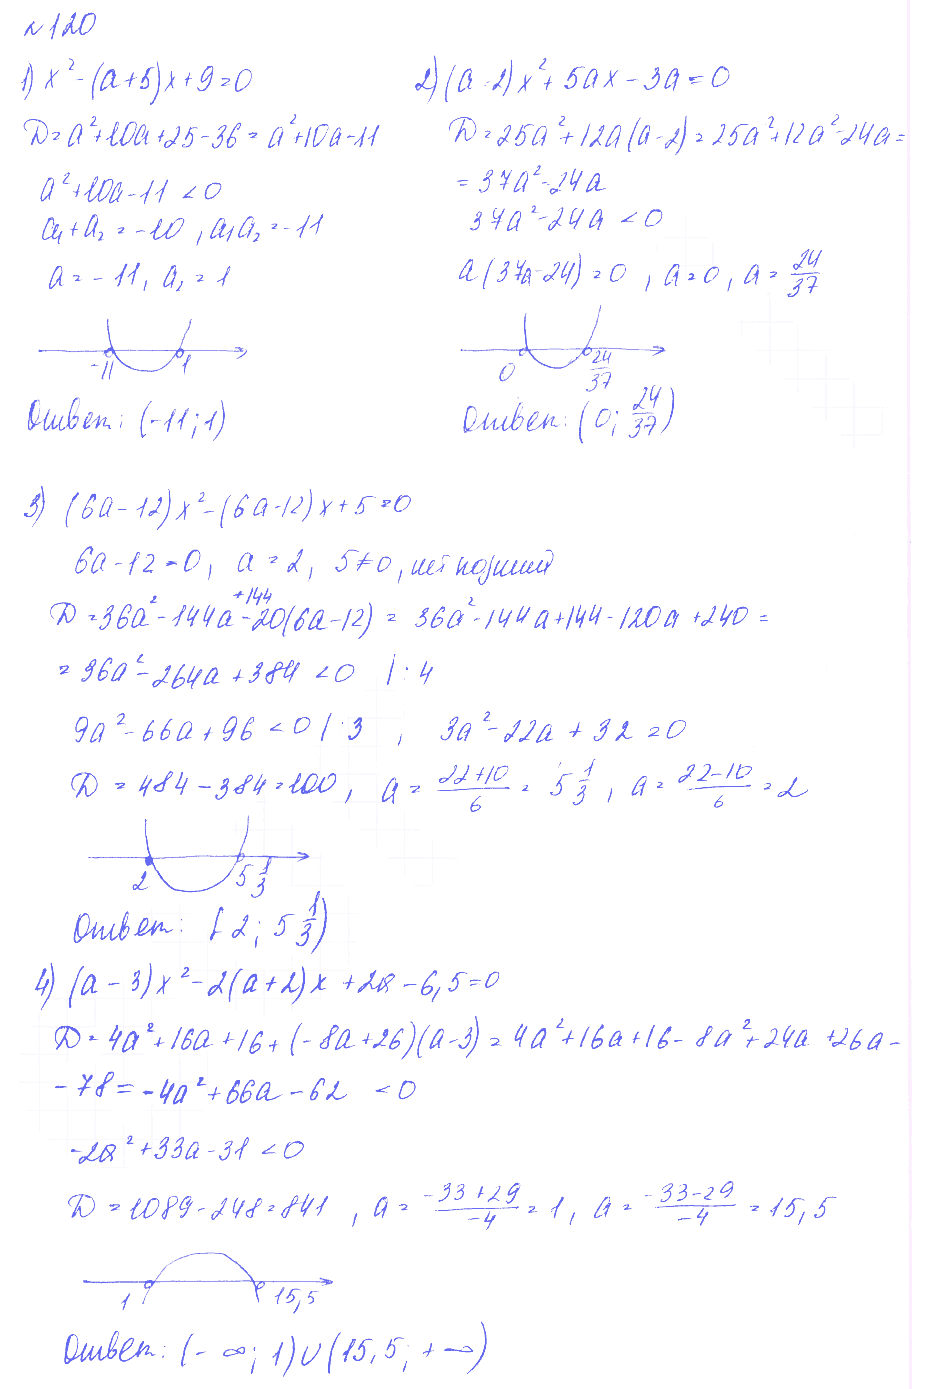 №120
1) x² - (a+5)x + 9 = 0
D = a² + 10a + 25 - 36 = a² + 10a - 11
a² + 10a - 11 < 0
a₁ + a₂ = -10, a₁a₂ = -11
a = -11, a₂ = 1
-11 1
Ответ: (-11; 1)
2) (a-2)x² + 5ax - 3a = 0
D = 25a² + 12a(a-2) = 25a² + 12a² - 24a =
= 37a² - 24a
37a² - 24a < 0
a(37a - 24) = 0, a = 0, a = 24/37
0 24/37
Ответ: (0; 24/37)
3) (6a - 12)x² - (6a - 12)x + 5 = 0
6a - 12 = 0, a = 2, 5 ≠ 0, нет
D = 36a² - 144a + 144 - 20(6a - 12) = 36a² - 144a + 144 - 120a + 240 =
= 36a² - 264a + 384 < 0 | : 4
9a² - 66a + 96 < 0 | : 3, 3a² - 22a + 32 = 0
D = 484 - 384 = 100, a = (22+10)/6 = 5 1/3, a = (22-10)/6 = 2
2 5 1/3
Ответ: [2; 5 1/3)
4) (a - 3)x² - 2(a+2)x + 2a - 6,5 = 0
D = 4a² + 16a + 16 + (-8a + 26)(a-3) = 4a² + 16a + 16 - 8a² + 24a + 26a -
- 78 = -4a² + 66a - 62 < 0
-2a² + 33a - 31 < 0
D = 1089 - 248 = 841, a = (-33+29)/-4 = 1, a = (-33-29)/-4 = 15,5
1 15,5
Ответ: (-∞; 1)∪(15,5; +∞)